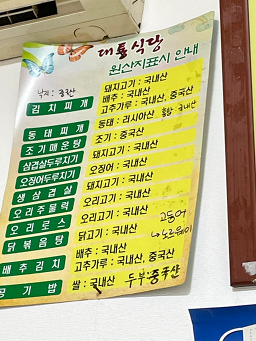 대통식당
원산지표시 안내
낙지 : 중국산
김치찌개
돼지고기 : 국내산
배추 : 국내산
고추가루 : 국내산, 중국산
동태찌개 동태 : 러시아산 홍합 국내산
조기매운탕 조기 : 중국산
삼겹살두루치기 돼지고기 : 국내산
오징어두루치기 오징어 : 국내산
생삼겹살 돼지고기 : 국내산
오리주물럭 오리고기 : 국내산
오리로스 오리고기 : 국내산
닭볶음탕 닭고기 : 국내산
고등어
↳노르웨이
배추김치
배추 : 국내산
고추가루 : 국내산, 중국산
공기밥 쌀 : 국내산 두부:중국산